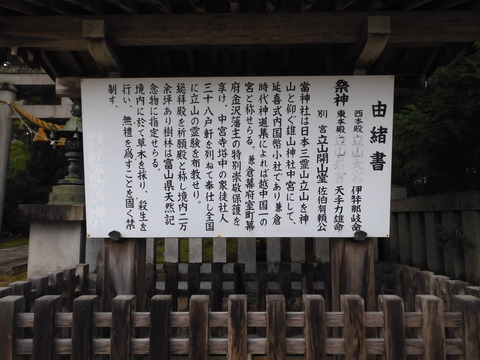 由緒書
祭神
西本殿 立山大宮 伊弉那岐命
東本殿 立山 天手力雄命
別宮 立山開山堂 佐伯有頼公
當神社は日本三霊山立山を神
山と仰ぐ雄山神社中宮にして、
延喜式内国幣小社であり鎌倉
時代神道集によれば越中国一の
宮と称せらる。鎌倉幕府室町幕
府金沢藩主の特別崇敬保護を
享け、中宮寺塔中の衆徒社人
三十八戸軒を列ねて奉仕し全国
に立山の霊験を布教せり。
総拝殿を祈願殿と称し境内二万
余坪あり樹林は富山県天然記
念物に指定せらる。
境内に於て草木を採り、殺生を
行い、無禮を為すことを固く禁
制す。